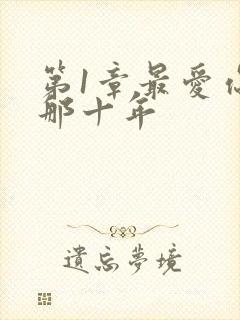 第1章最爱你
那十年
遺忘夢境